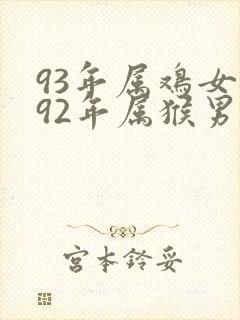 93年属鸡女
92年属猴男
宫本铃妥